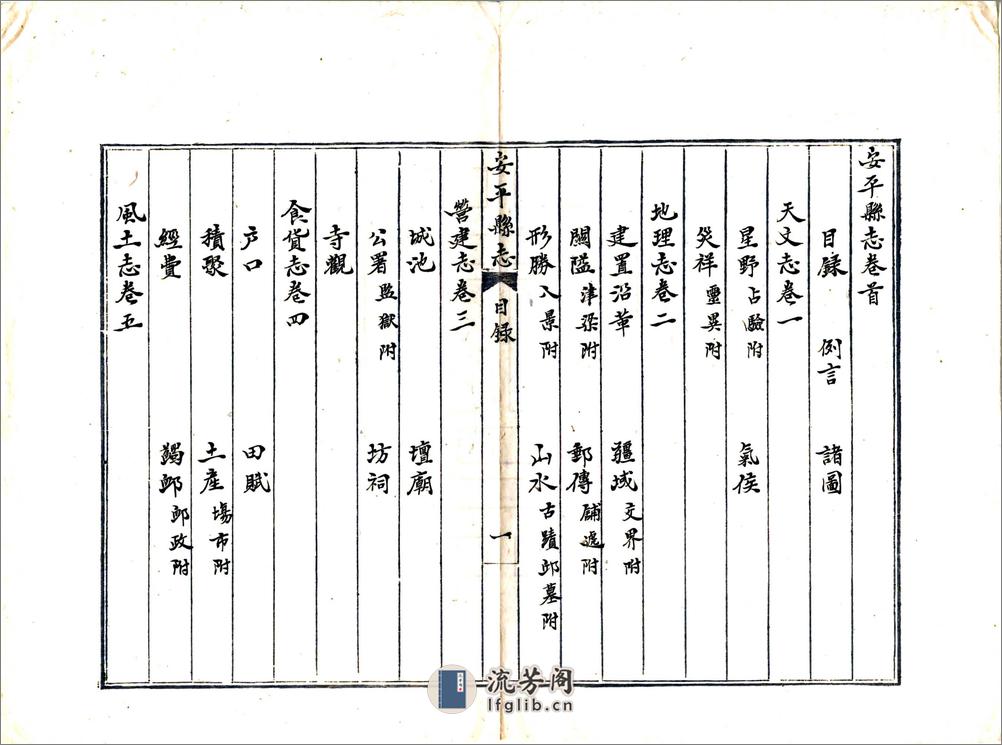 安平縣志卷首
目錄 例言 諸圖
天文志卷一
星野占驗附 氣侯
災祥靈異附
地理志卷二
建置沿革 疆域交界附
關隘津梁附 郵傳舖遞附
形勝八景附 山水古蹟邱墓附
安平縣志 目錄 一
營建志卷三
城池 壇廟
公署監獄附 坊祠
寺觀
食貨志卷四
户口 田賦
積聚 土產場市附
經費 蠲卹卹政附
風土志卷五
流芳阁
lfglib.cn